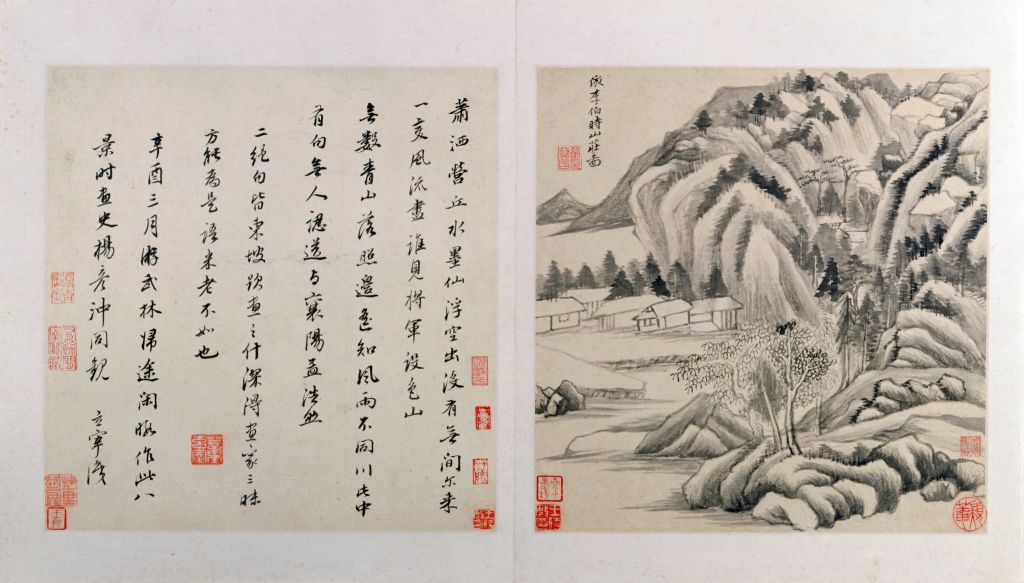 倣李伯時山莊啚
蕭洒營丘水墨仙浮空出沒有無間尓来
一变風流盡誰見將軍設色山
無數青山落照邊遥知風雨不同川此中
有句無人識送与襄陽孟浩然
二絕句皆東坡題畫之什深得畫家三昧
方能為是語米老不如也
辛酉三月游武林歸途閑暇作此八
景时畫史楊彥冲同觀 玄宰識